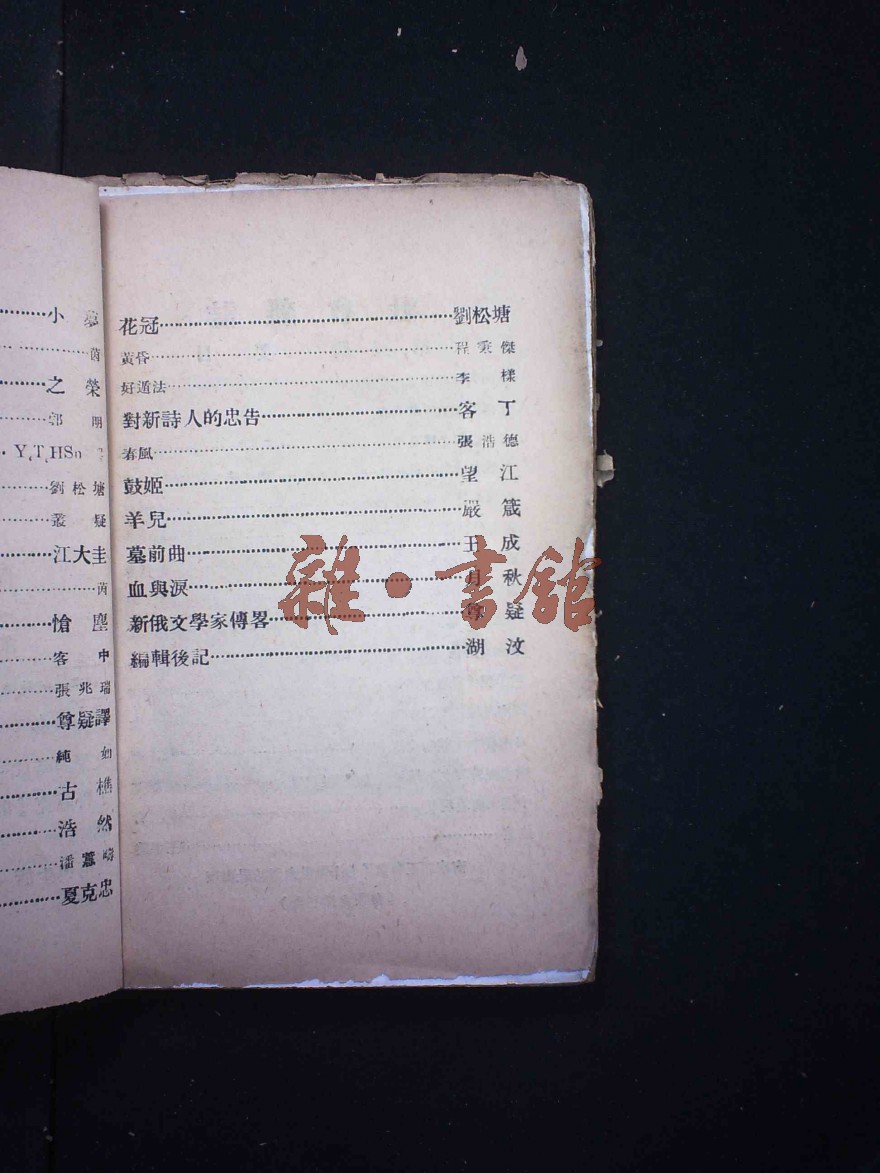 小
茵
之榮
郭朋
Y₄T₄HSn
劉松塘
叢疑
江大圭
茵
愴塵
客中
張兆瑞
尊疑譯
純如
古樵
浩然
潘蕙疇
夏克忠
花冠 劉松塘
黃昏 程秉傑
好逍法 李樣
對新詩人的忠告 客丁
春風 張浩德
鼓姬 望江
羊兒 嚴箴
墓前曲 王成
血與淚 月秋
新俄文學家傳畧 疑
編輯後記 湖汶
雜・書館